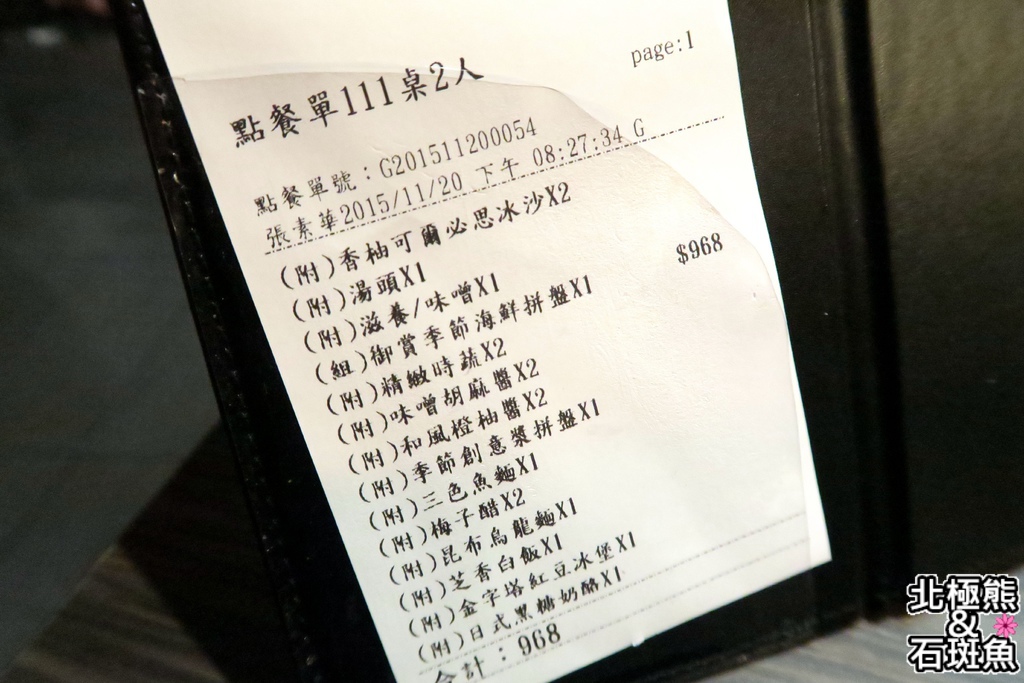 page:1
點餐單111桌2人
點餐單號：G201511200054
張素華2015/11/20 下午 08:27:34 G
(附)香柚可爾必思冰沙X2
(附)湯頭X1
(附)滋養/味噌X1
(組)御賞季節海鮮拼盤X1 $968
(附)精緻時蔬X2
(附)味噌胡麻醬X2
(附)和風橙柚醬X2
(附)季節創意漿拼盤X1
(附)三色魚麵X1
(附)梅子醋X2
(附)昆布烏龍麵X1
(附)芝香白飯X1
(附)金字塔紅豆冰堡X1
(附)日式黑糖奶酪X1
合計：968
北極熊
&
石斑魚